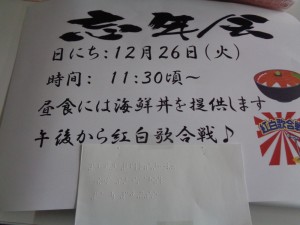 忘年会
日にち：12月26日（火）
時間： 11:30頃～
昼食には海鮮丼を提供します
午後から紅白歌合戦♪
紅白歌合戦